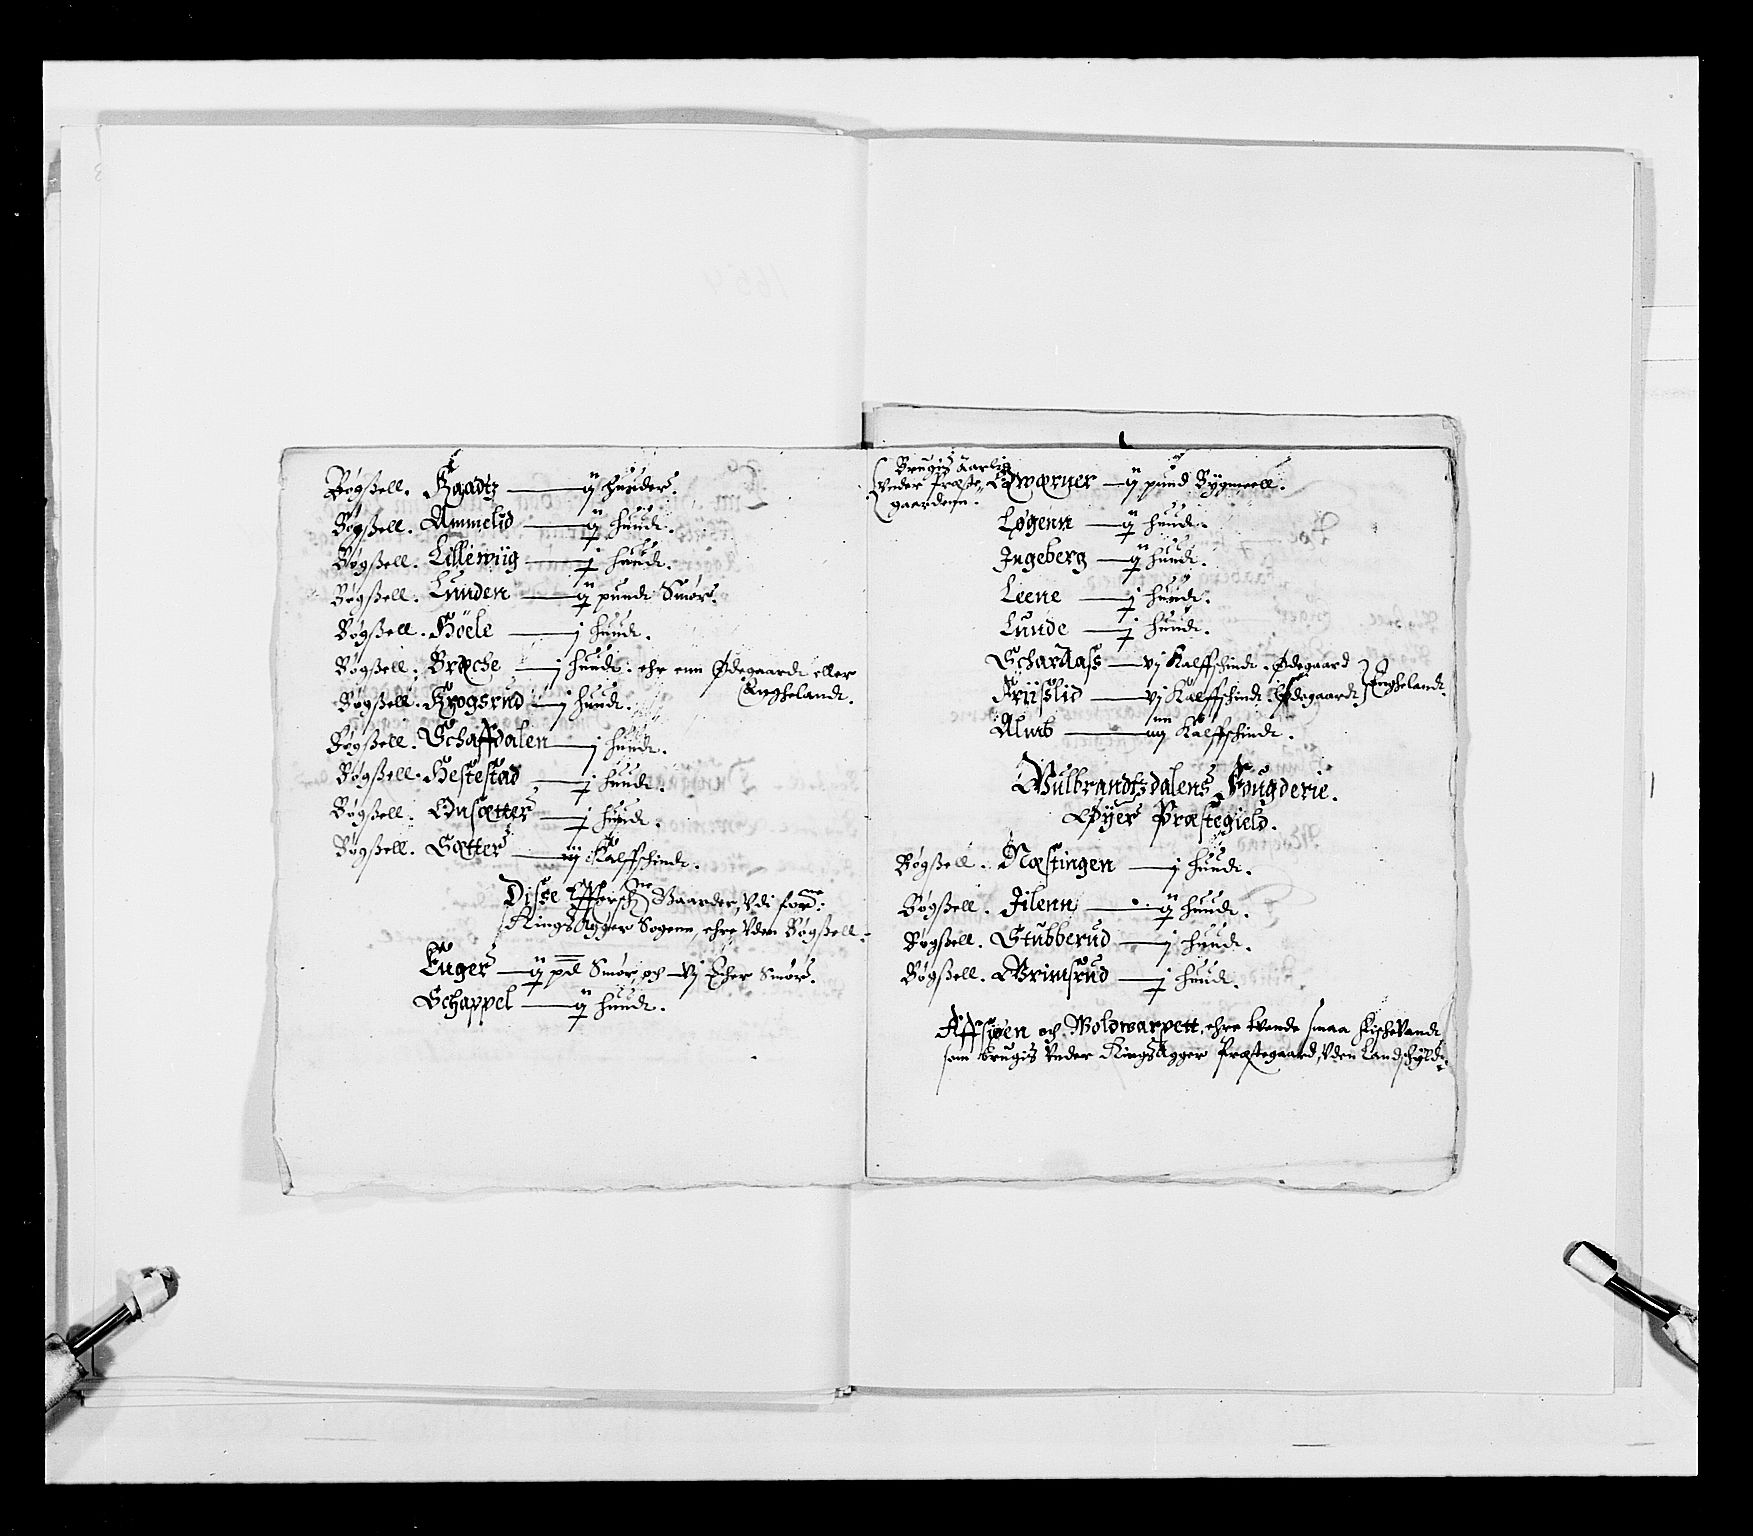 Bøgßell. Kaadtz — ij huuder.
Bøgßell. Ammelid — ij huude.
Bøgßell. Lillewiig — j huude.
Bøgßell. Lunden — ij punde Smør.
Bøgßell. Höele — j huude.
Bøgßell. Bræche — j huude: ehr enn Ødegaarde eller
Enghelande.
Bøgßell. Krogsrud — j huude.
Bøgßell. Schaffdalen — j huude.
Bøgßell. Hestestad — j huude.
Bøgßell. Onsætter — j huude.
Bøgßell. Sætter — iij Kalffschinde.
Disse Gaarder, Vdi
RingsAgger Sogenn, ehre Vden Bøgßell.
Enger — ij pd Smør, och — vj Smør.
Schappel — ij huude.
Brugis Aarlig
Vnder Præste-
gaardenn.
Qwærner — ij pund Bÿgmeell.
Løgenn — ij huude.
Ingeberg — ij huude.
Leene — j huude.
Lunde — j huude.
Schardass — vj Kalffschinde. Ødegaard
Friisslid — vj Kalffschinde Ødegaarde Enghelande.
Alm — iiij Kalffschinde.
Gulbrandtzdalens Fougderie.
Øÿer Præstegield.
Bøgßell. Næstingen — j huude.
Bøgßell. Jilenn — ij huude.
Bøgßell. Stubberud — j huude.
Bøgßell. Grimsrud — j huude.
Affsiøen och Woldwarpett, ehre tvende smaa fischeVande
som brugis Vnder RingsAgger Præstegaard, Vden Landschÿlde.